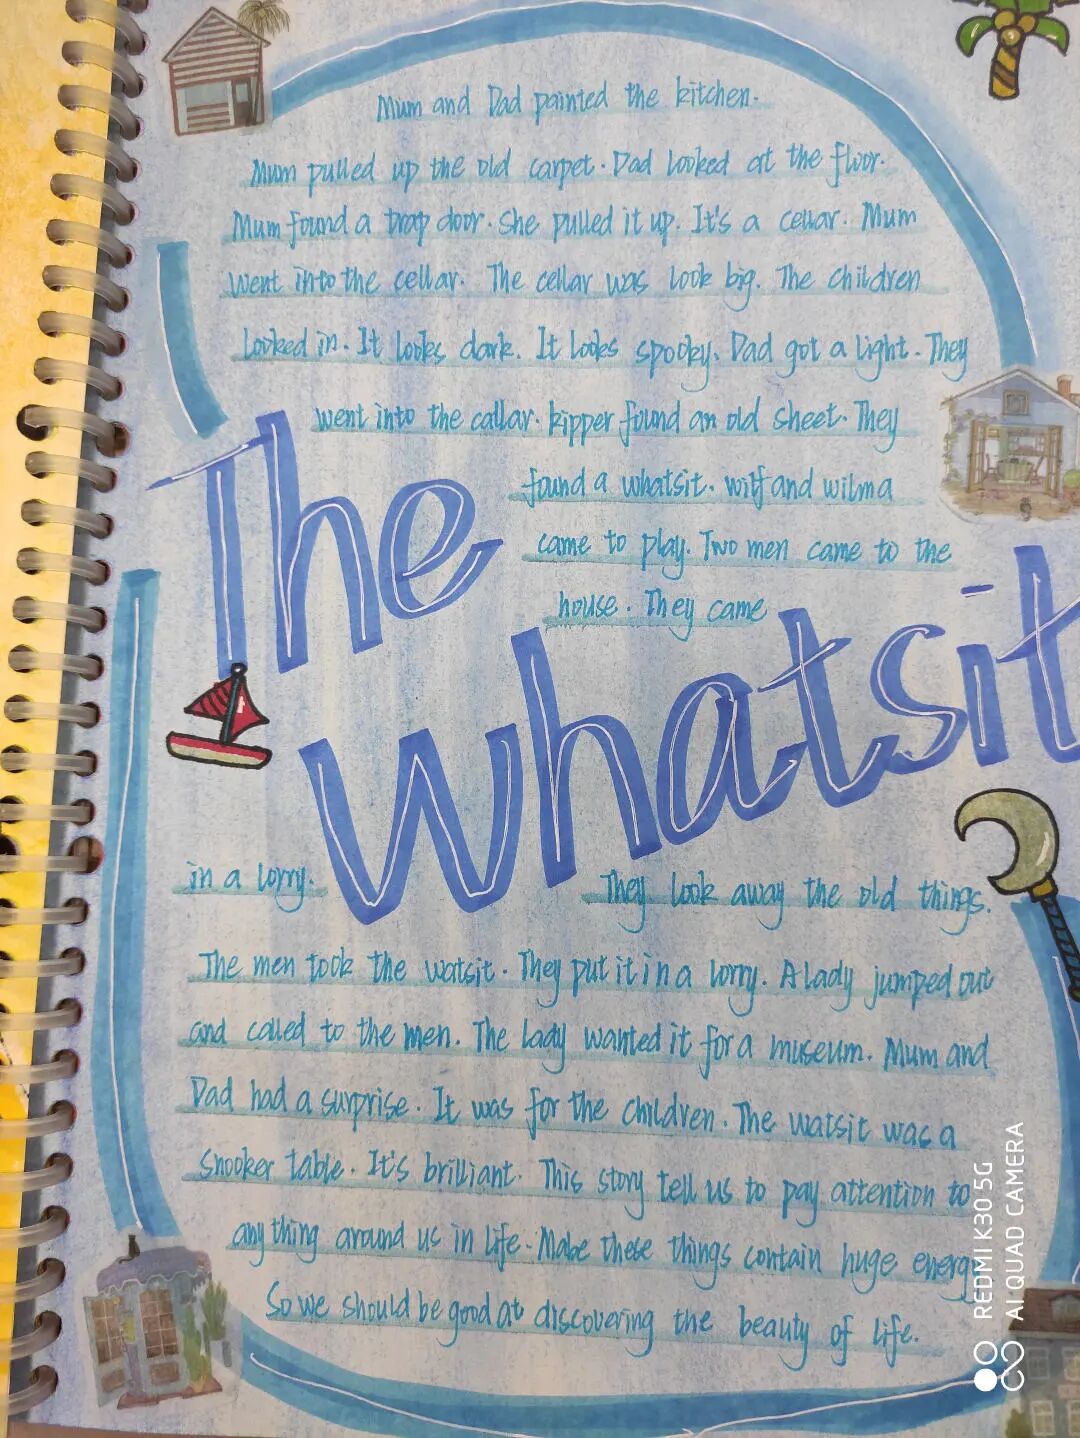 Mum and Dad painted the kitchen.
Mum pulled up the old carpet. Dad looked at the floor.
Mum found a trap door. She pulled it up. It's a cellar. Mum
went into the cellar. The cellar was look big. The children
looked in. It looks dark. It looks spooky. Dad got a light. They
went into the callar. kipper found an old sheet. They
found a whatsit. wilf and wilma
came to play. Two men came to the
house. They came
The
whatsit
in a lorry.
They look away the old things.
The men took the watsit. They put it in a lorry. A lady jumped out
and called to the men. The lady wanted it for a museum. Mum and
Dad had a surprise. It was for the children. The watsit was a
snooker table. It's brilliant. This story tell us to pay attention to
any thing around us in life. Mabe these things contain huge energy
So we should be good at discovering the beauty of life.
REDMI K30 5G
AI QUAD CAMERA